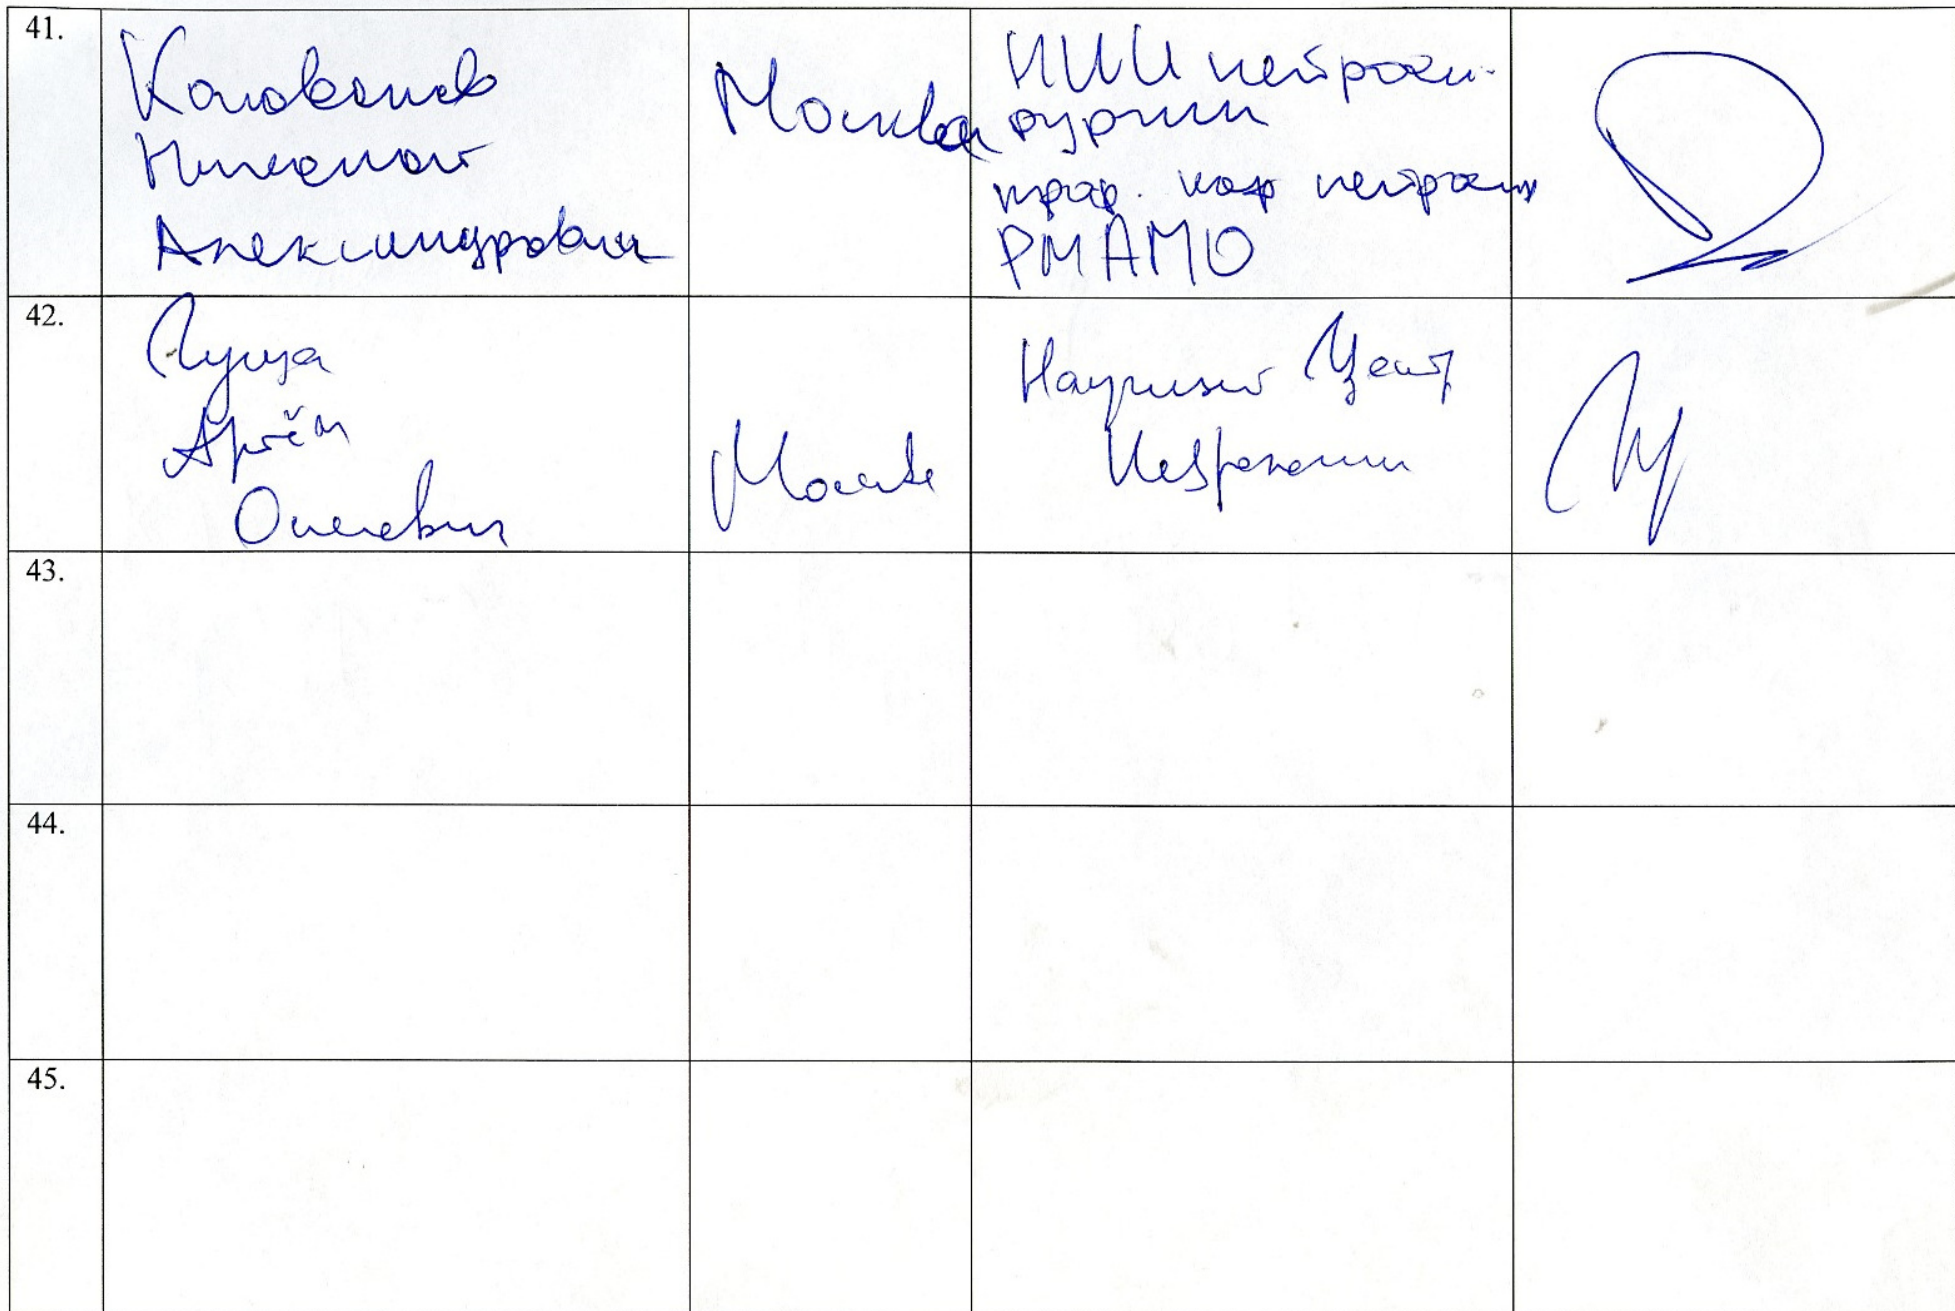 41.
Коновалов
Николай
Александрович
Москва
НИИ нейрохи-
рургии
проф. каф нейрохир
РМАПО
42.
Гуща
Артём
Олегович
Москва
Научный Центр
Неврологии
43.
44.
45.